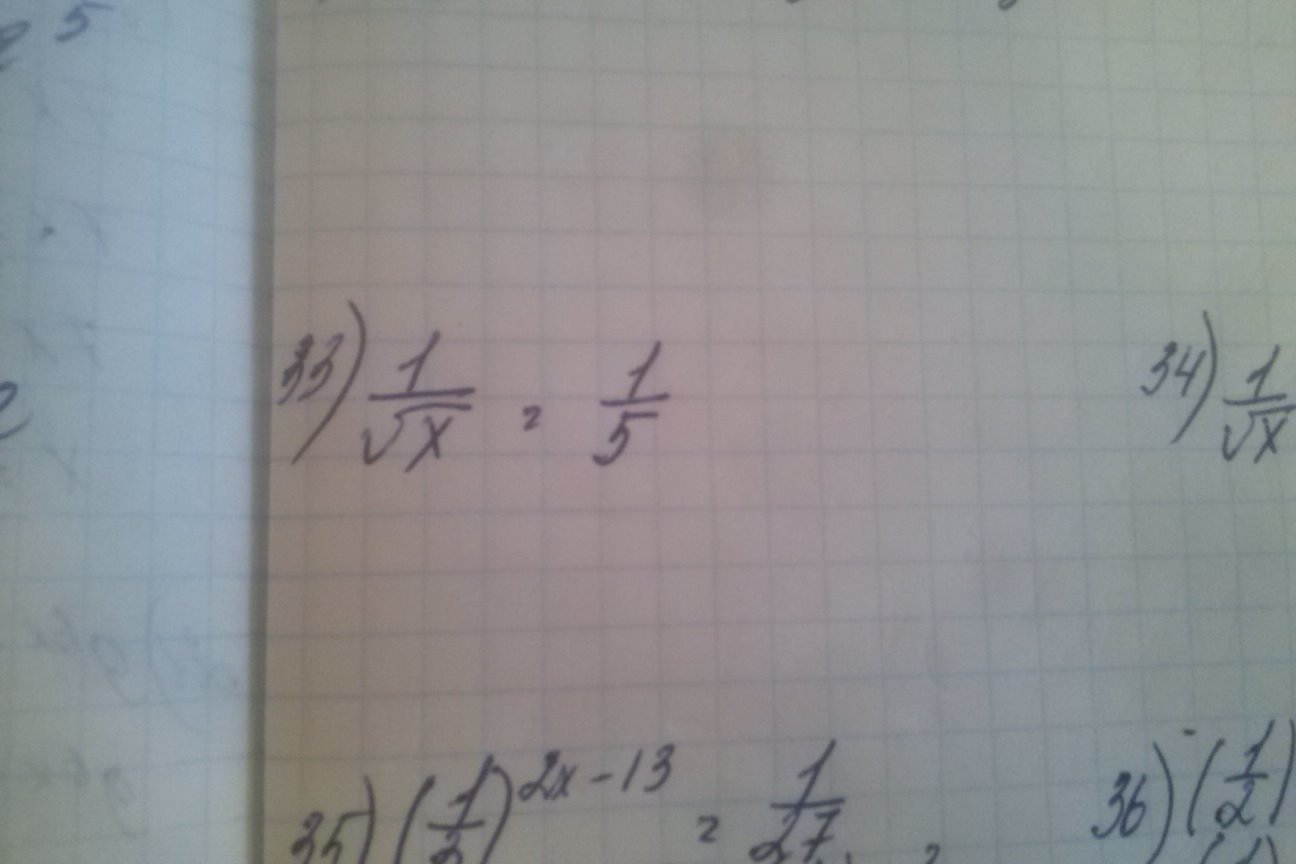 33) 1/√x = 1/5
34) 1/√x
35) (1/3)^2x-13 = 1/27
36) (1/2)